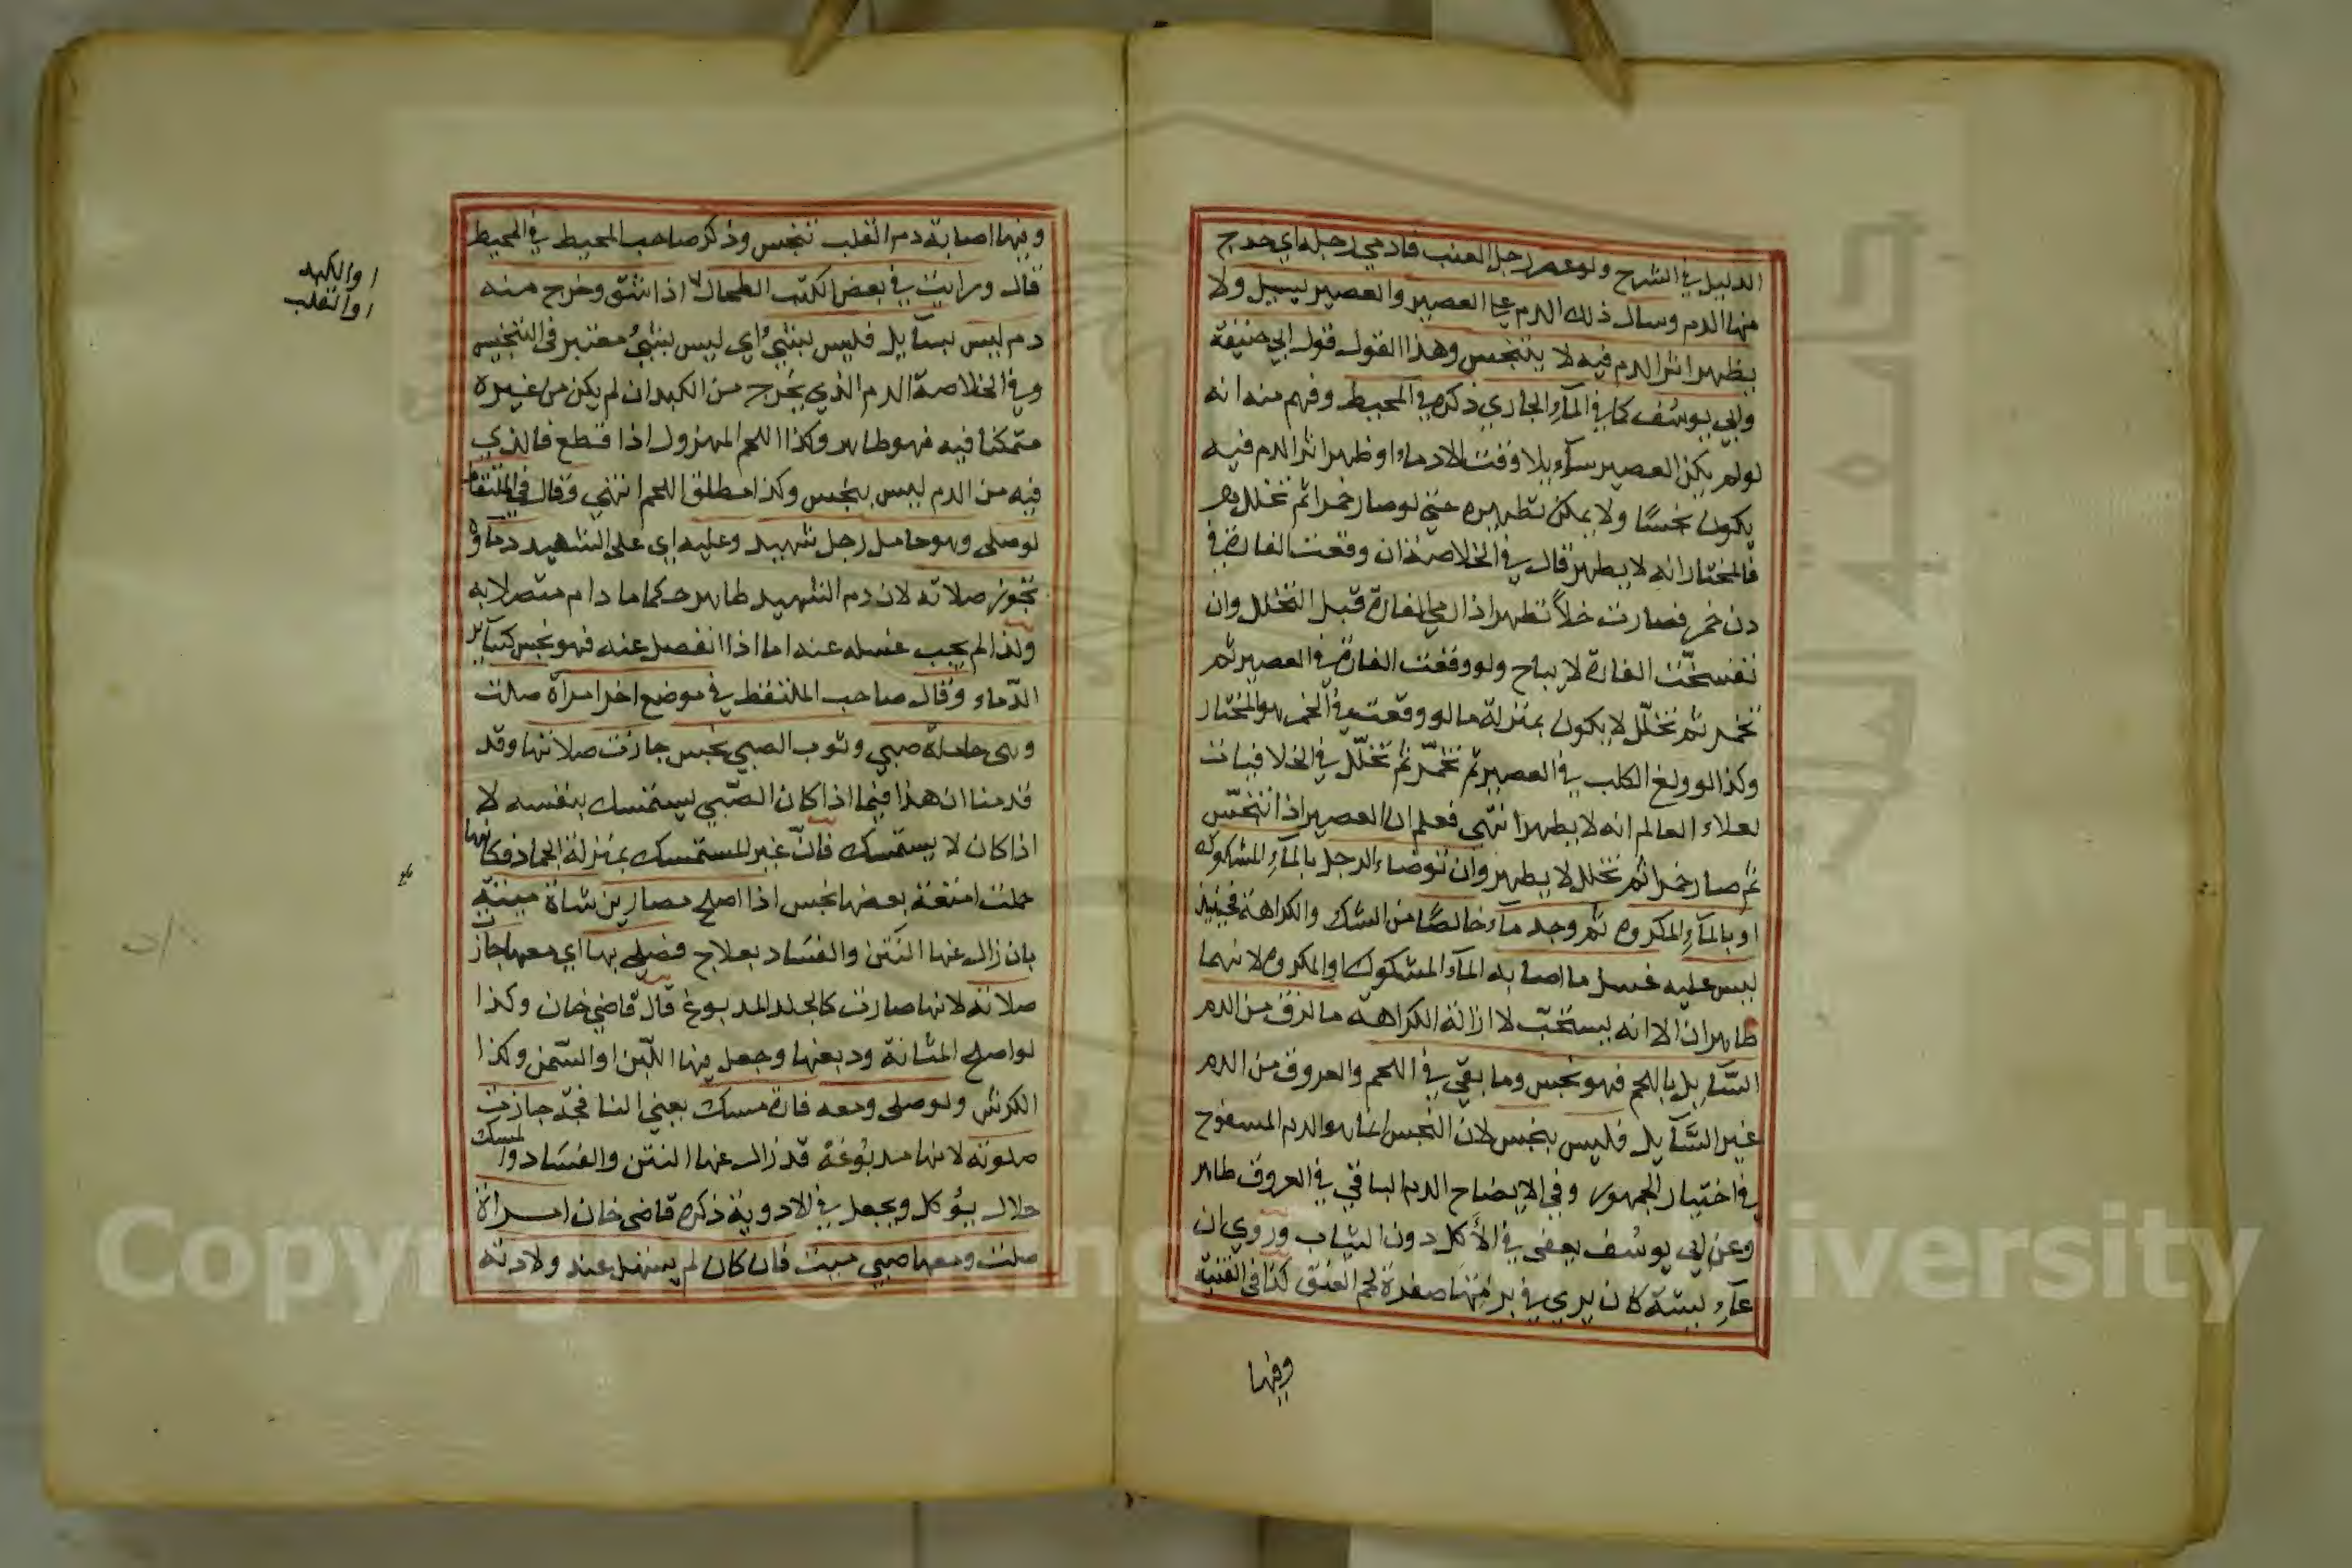 الدليل في الشرح ولو عصر رجل العنب فادمي رجله اي خرج
منها الدم وسال ذلك الدم على العصير والعصير يسيل ولا
يظهر اثر الدم فيه لا يتنجس وهذا القول قول ابي حنيفة
وابي يوسف كما في الماء الجاري ذكره في المحيط وفهم منه انه
لو لم يكن العصير سائلا وقت الادماء او ظهر اثر الدم فيه
يكون نجسًا ولا يمكن تطهيره حتى لو صار خمرا ثم تخلل
فالمختار انه لا يطهر قال في الخلاصة ان وقعت الفارة في
دن خمر فصارت خلاً تطهر اذا رمي الفارة قبل التخلل وان
تفسّخت الفارة لا يباح ولو وقعت الفارة في العصير ثم
تخمر ثم تخلّل لا يكون بمنزلة ما لو وقعت في الخمر هو المختار
وكذا لو ولغ الكلب في العصير ثم تخمّر ثم تخلّل في الخلافيات
لعلاء العالم انه لا يطهر انتهى فعلم ان العصير اذا تنجّس
ثم صار خمرا ثم تخلل لا يطهر وان توضاء الرجل بالماء المشكوك
او بالماء المكروه ثم وجد ماء خالصًا من الشك والكراهة فحينئذ
ليس عليه غسل ما اصابه الماء المشكوك او المكروه لانهما
طاهران الا انه يستحبّ لازالة الكراهة ما نزف من الدم
السّايل باللحم فهو نجس وما بقي في اللحم والعروق من الدم
غير السّايل فليس بنجس لان النجس انما هو الدم المسفوح
في اختيار الجمهور وفي الايضاح الدم الباقي في العروق طاهر
وعن ابي يوسف يعفى في الأكل دون الثياب وروي ان
عائشة كان يري في برمتها صفرة لحم العنق كذا في القنية
وفيها
وفيها اصابة دم القلب تنجس وذكر صاحب المحيط في المحيط
قال ورايت في بعض الكتب الطحال اذا شق وخرج منه
دم ليس بسايل فليس بشئ اي ليس بشئ معتبر في التنجيس
وفي الخلاصة الدم الذي يخرج من الكبد ان لم يكن من غيره
متمكنا فيه فهو طاهر وكذا اللحم المهزول اذا قطع فالذي
فيه من الدم ليس بنجس وكذا مطلق اللحم انتهى وقال في الملتقط
لو صلى وهو حامل رجل شهيد وعليه اي على الشهيد دماؤه
تجوز صلاته لان دم الشهيد طاهر حكما ما دام متصلا به
ولذا لم يجب غسله عنه اما اذا انفصل عنه فهو نجس كسائر
الدّماء وقال صاحب الملتقط في موضع اخر امرأة صلت
وهى حاملة صبي وثوب الصبي نجس جازت صلاتها وقد
قدمنا ان هذا فيما اذا كان الصّبي يستمسك بنفسه لا
اذا كان لا يستمسك فانّ غير المستمسك بمنزلة الجماد فكانها
حملت امتعة بعضها نجس اذا اصلح مصارين شاة ميتة
بان زال عنها النّتن والفساد بعلاج فصلى بها اي معها جازت
صلاته لانها صارت كالجلد المدبوغ قال قاضي خان وكذا
لو اصلح المثانة ودبغها وجعل فيها اللّبن او السّمن وكذا
الكرش ولو صلى ومعه فارة مسك يعني النافجة جازت
صلوته لانها مدبوغة قد زال عنها النتن والفساد والمسك
حلال يؤكل ويجعل في الادوية ذكره قاضي خان امراة
صلت ومعها صبي ميت فان كان لم يستهل عند ولادته
او الكبد
او القلب